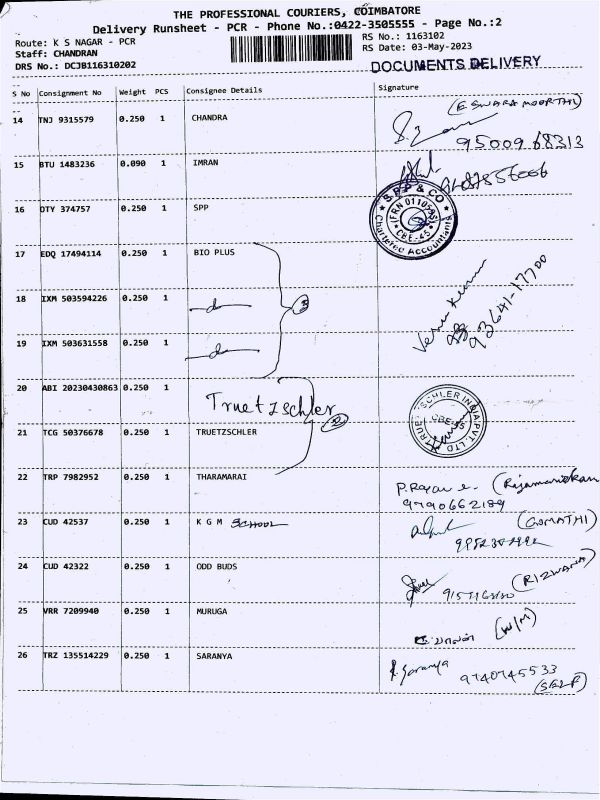 THE PROFESSIONAL COURIERS, COIMBATORE
Delivery Runsheet - PCR - Phone No.:0422-3505555 - Page No.:2
Route: K S NAGAR - PCR
RS No.: 1163102
Staff: CHANDRAN
RS Date: 03-May-2023
DRS No.: DCJB116310202
DOCUMENTS DELIVERY
S No Consignment No Weight PCS Consignee Details Signature
14 TNJ 9315579 0.250 1 CHANDRA
(ESWARAMOORTHI)
95009 68313
15 BTU 1483236 0.090 1 IMRAN
16 DTY 374757 0.250 1 SPP
SPP & CO
Chartered Accountants
CBE-45
17 EDQ 17494114 0.250 1 BIO PLUS
18 IXM 503594226 0.250 1
93641-17700
19 IXM 503631558 0.250 1
20 ABI 20230430863 0.250 1 Truetzschler
21 TCG 50376678 0.250 1 TRUETZSCHLER
22 TRP 7982952 0.250 1 THARAMARAI
9790662189
23 CUD 42537 0.250 1 K G M SCHOOL
(GOMATHI)
24 CUD 42322 0.250 1 ODD BUDS
(RIZWANA)
25 VRR 7209940 0.250 1 MURUGA
(W/M)
26 TRZ 135514229 0.250 1 SARANYA
Saranya 9740745533
(SELF)